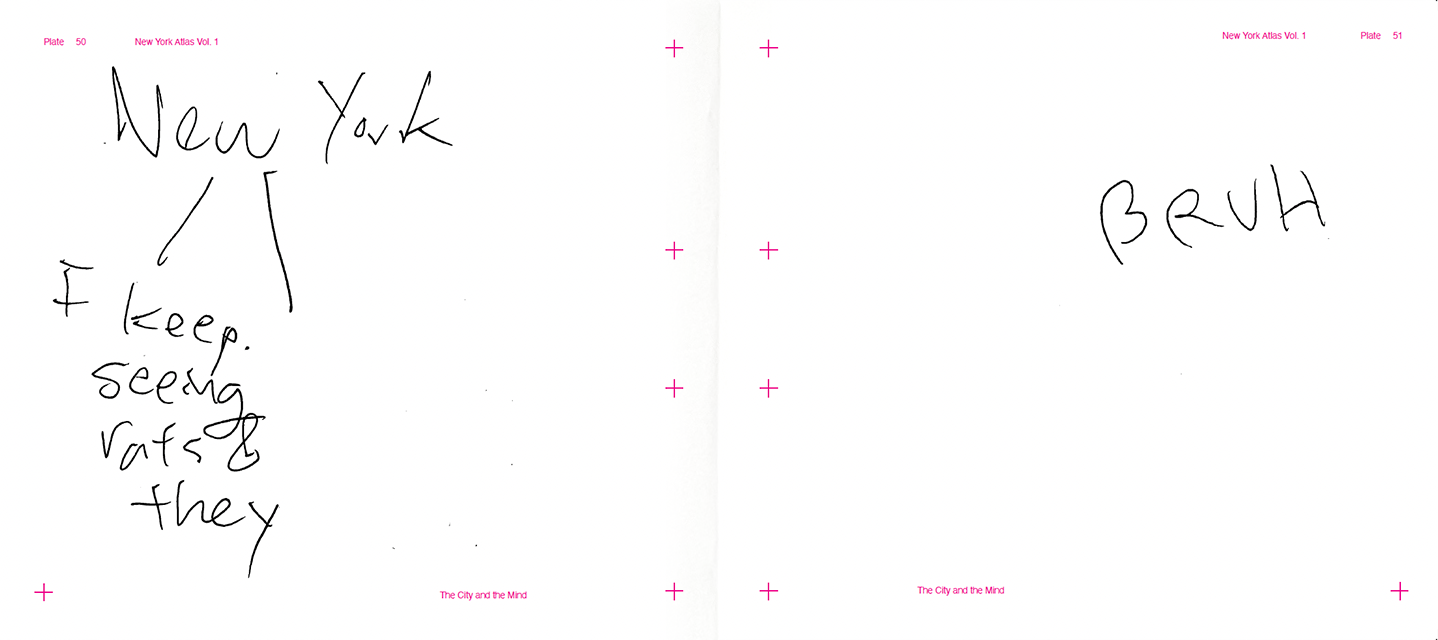 Plate 50 New York Atlas Vol. 1
New York
I keep.
seeing
rats &
they
The City and the Mind
New York Atlas Vol. 1 Plate 51
BRUH
The City and the Mind